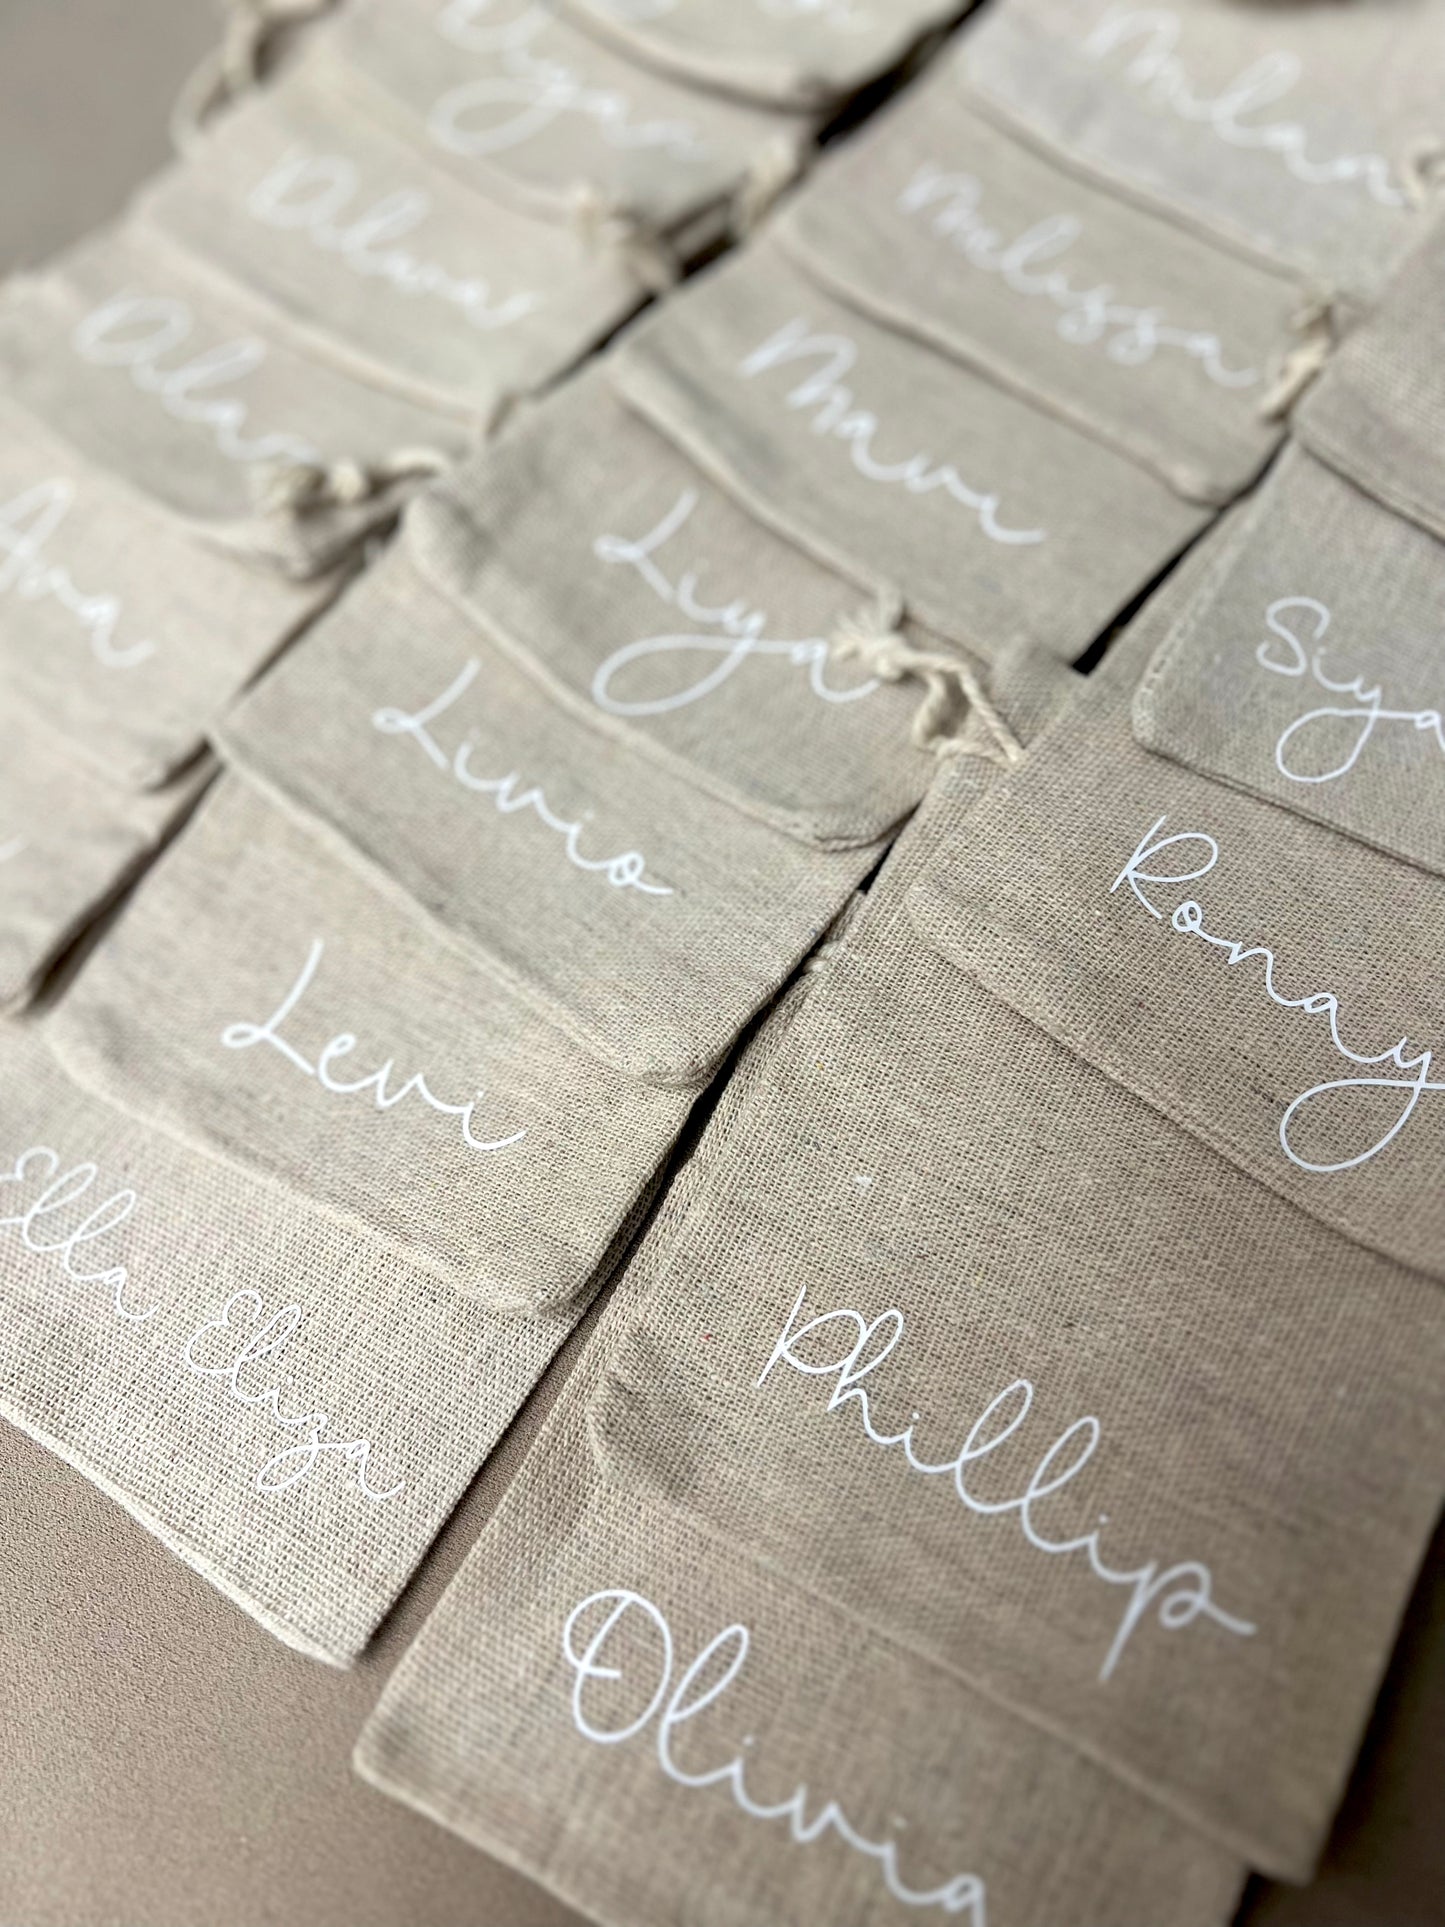 Alya
Alara
Ava
Milan
Melissa
Mavi
Liya
Livio
Levi
Ella Eliza
Siya
Ronay
Phillip
Olivia